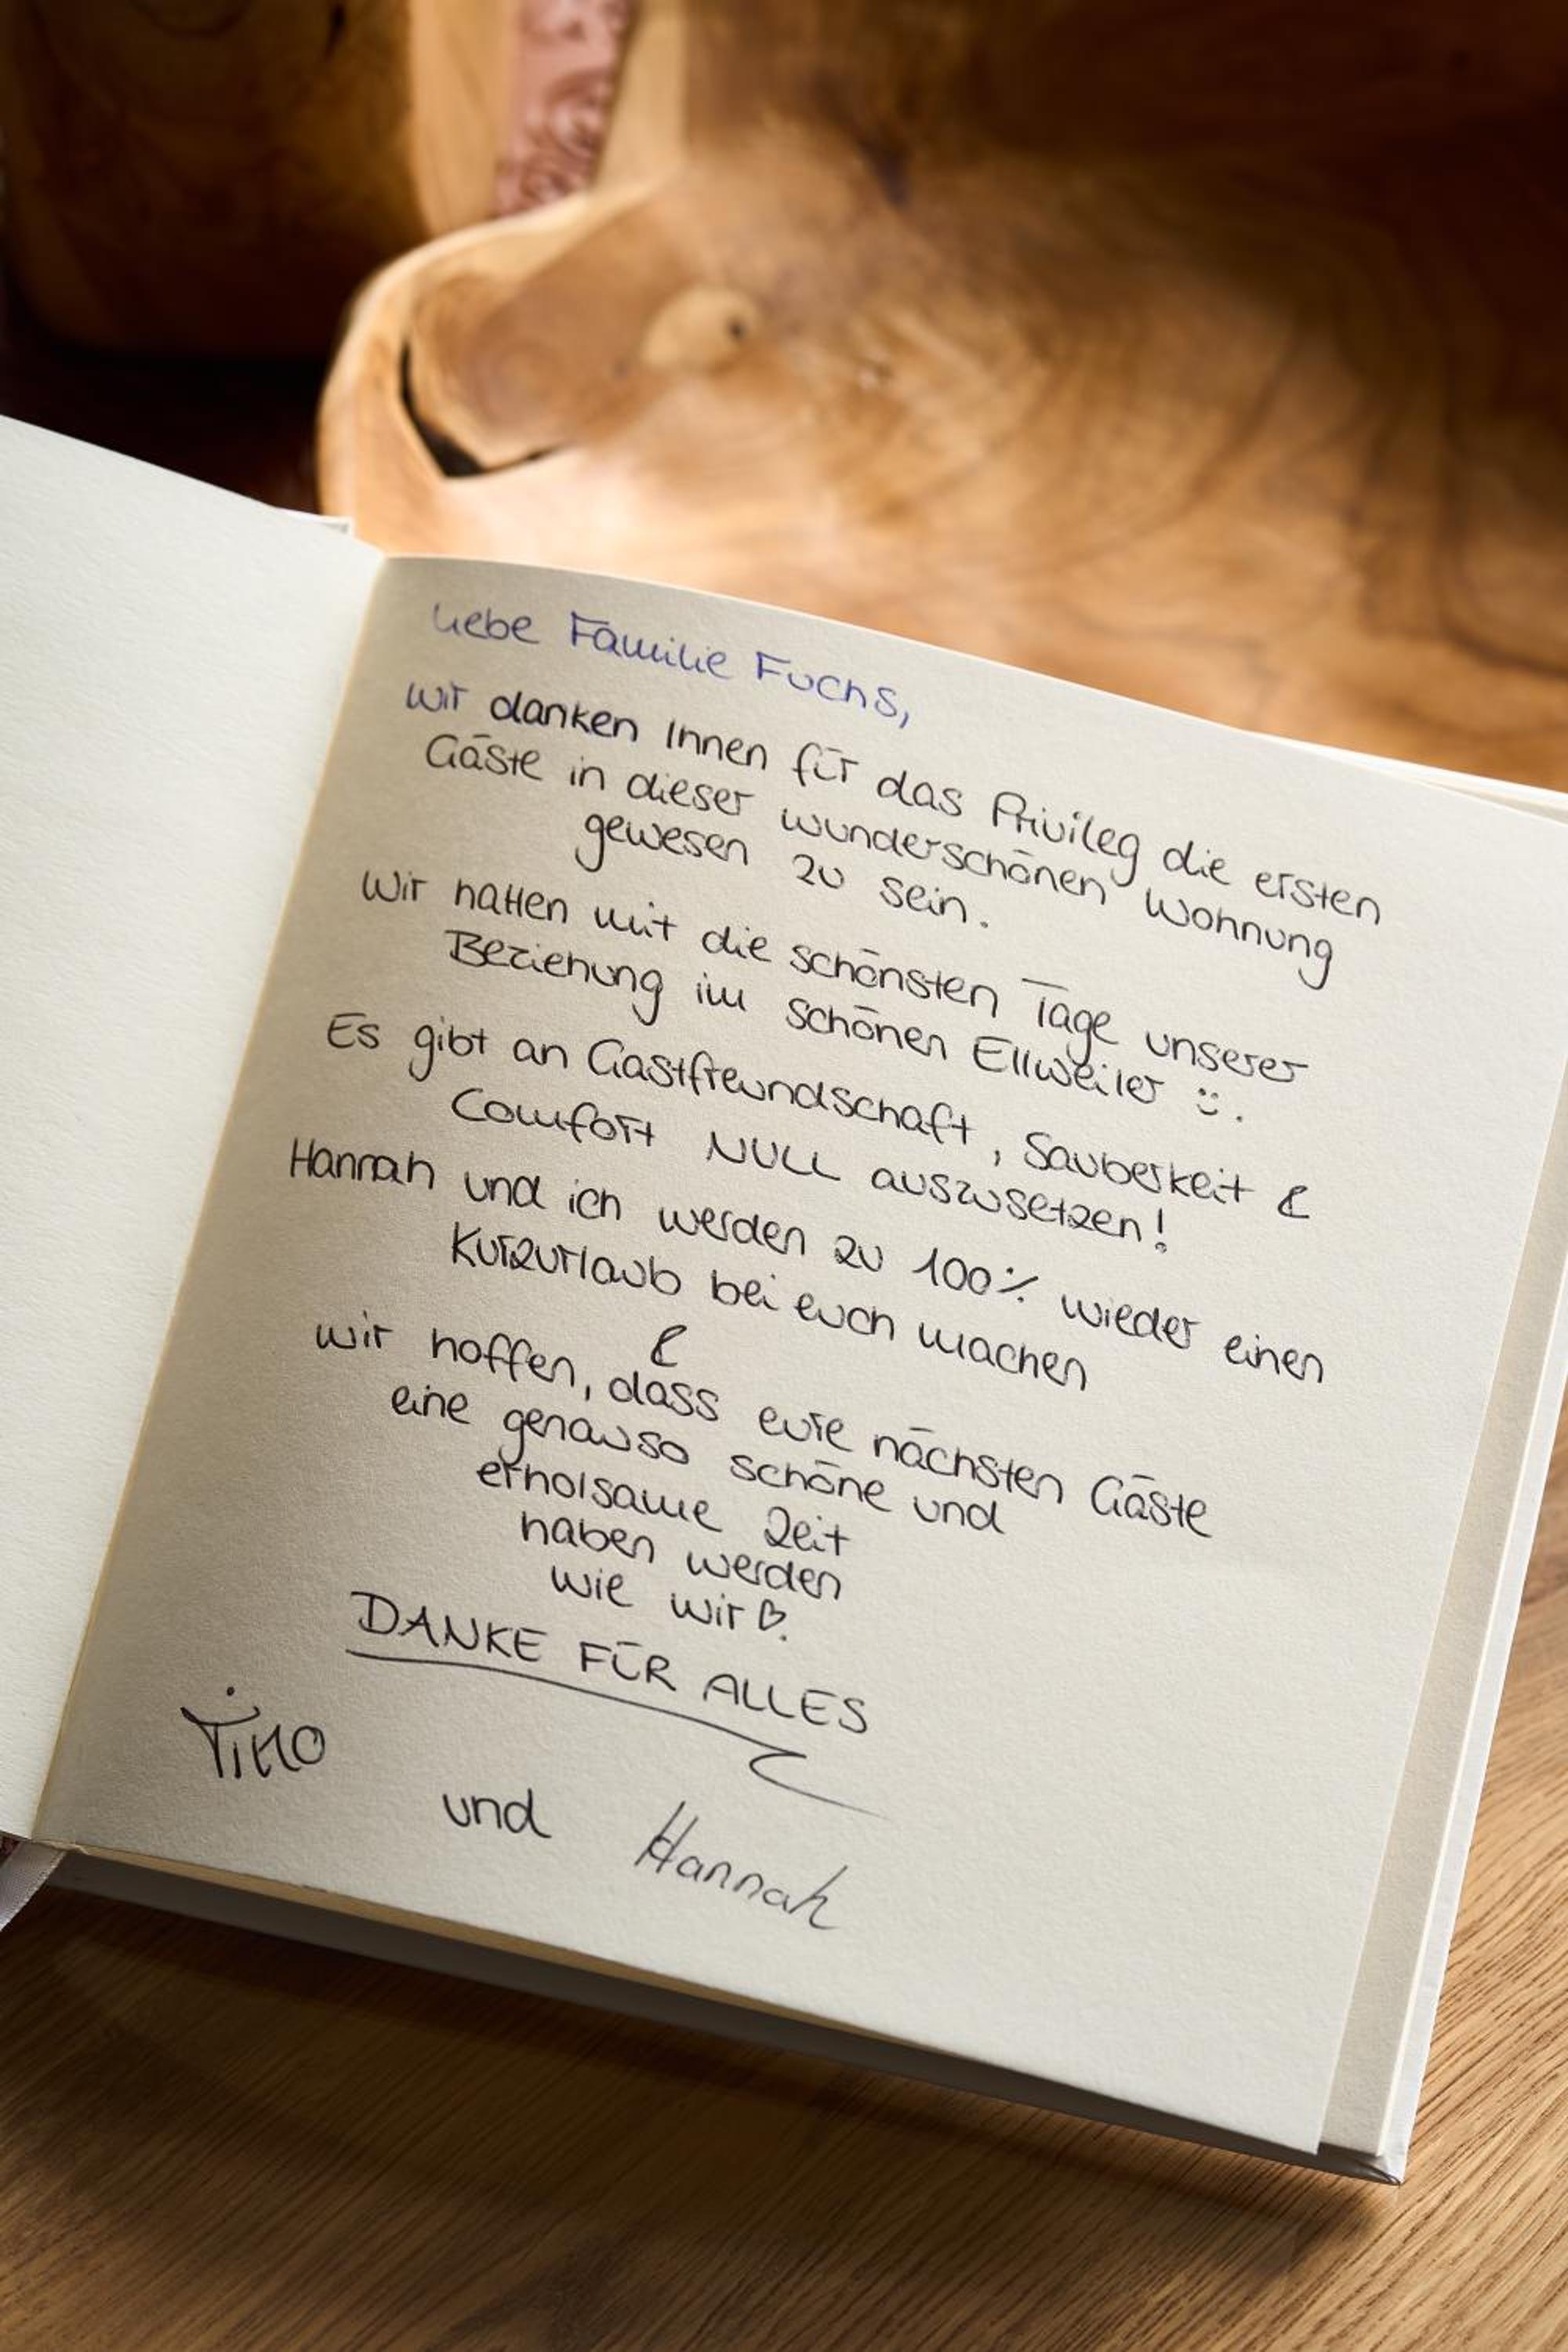 Liebe Familie Fuchs,
wir danken Ihnen für das Privileg die ersten
Gäste in dieser wunderschönen Wohnung
gewesen zu sein.
Wir hatten mit die schönsten Tage unserer
Beziehung im schönen Ellweiler ü.
Es gibt an Gastfreundschaft, Sauberkeit &
Comfort NULL auszusetzen!
Hannah und ich werden zu 100% wieder einen
Kurzurlaub bei euch machen
&
wir hoffen, dass eure nächsten Gäste
eine genauso schöne und
erholsame Zeit
haben werden
wie wir ♡.
DANKE FÜR ALLES
Timo
und Hannah